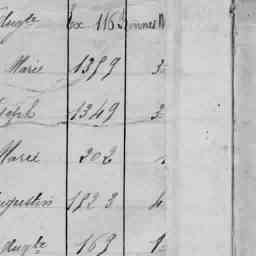 Augte Ex 116 Sommes
Marie 1379 3
Joseph 1349 3
Marie 202
Augustin 1823 4
Augte 163 1